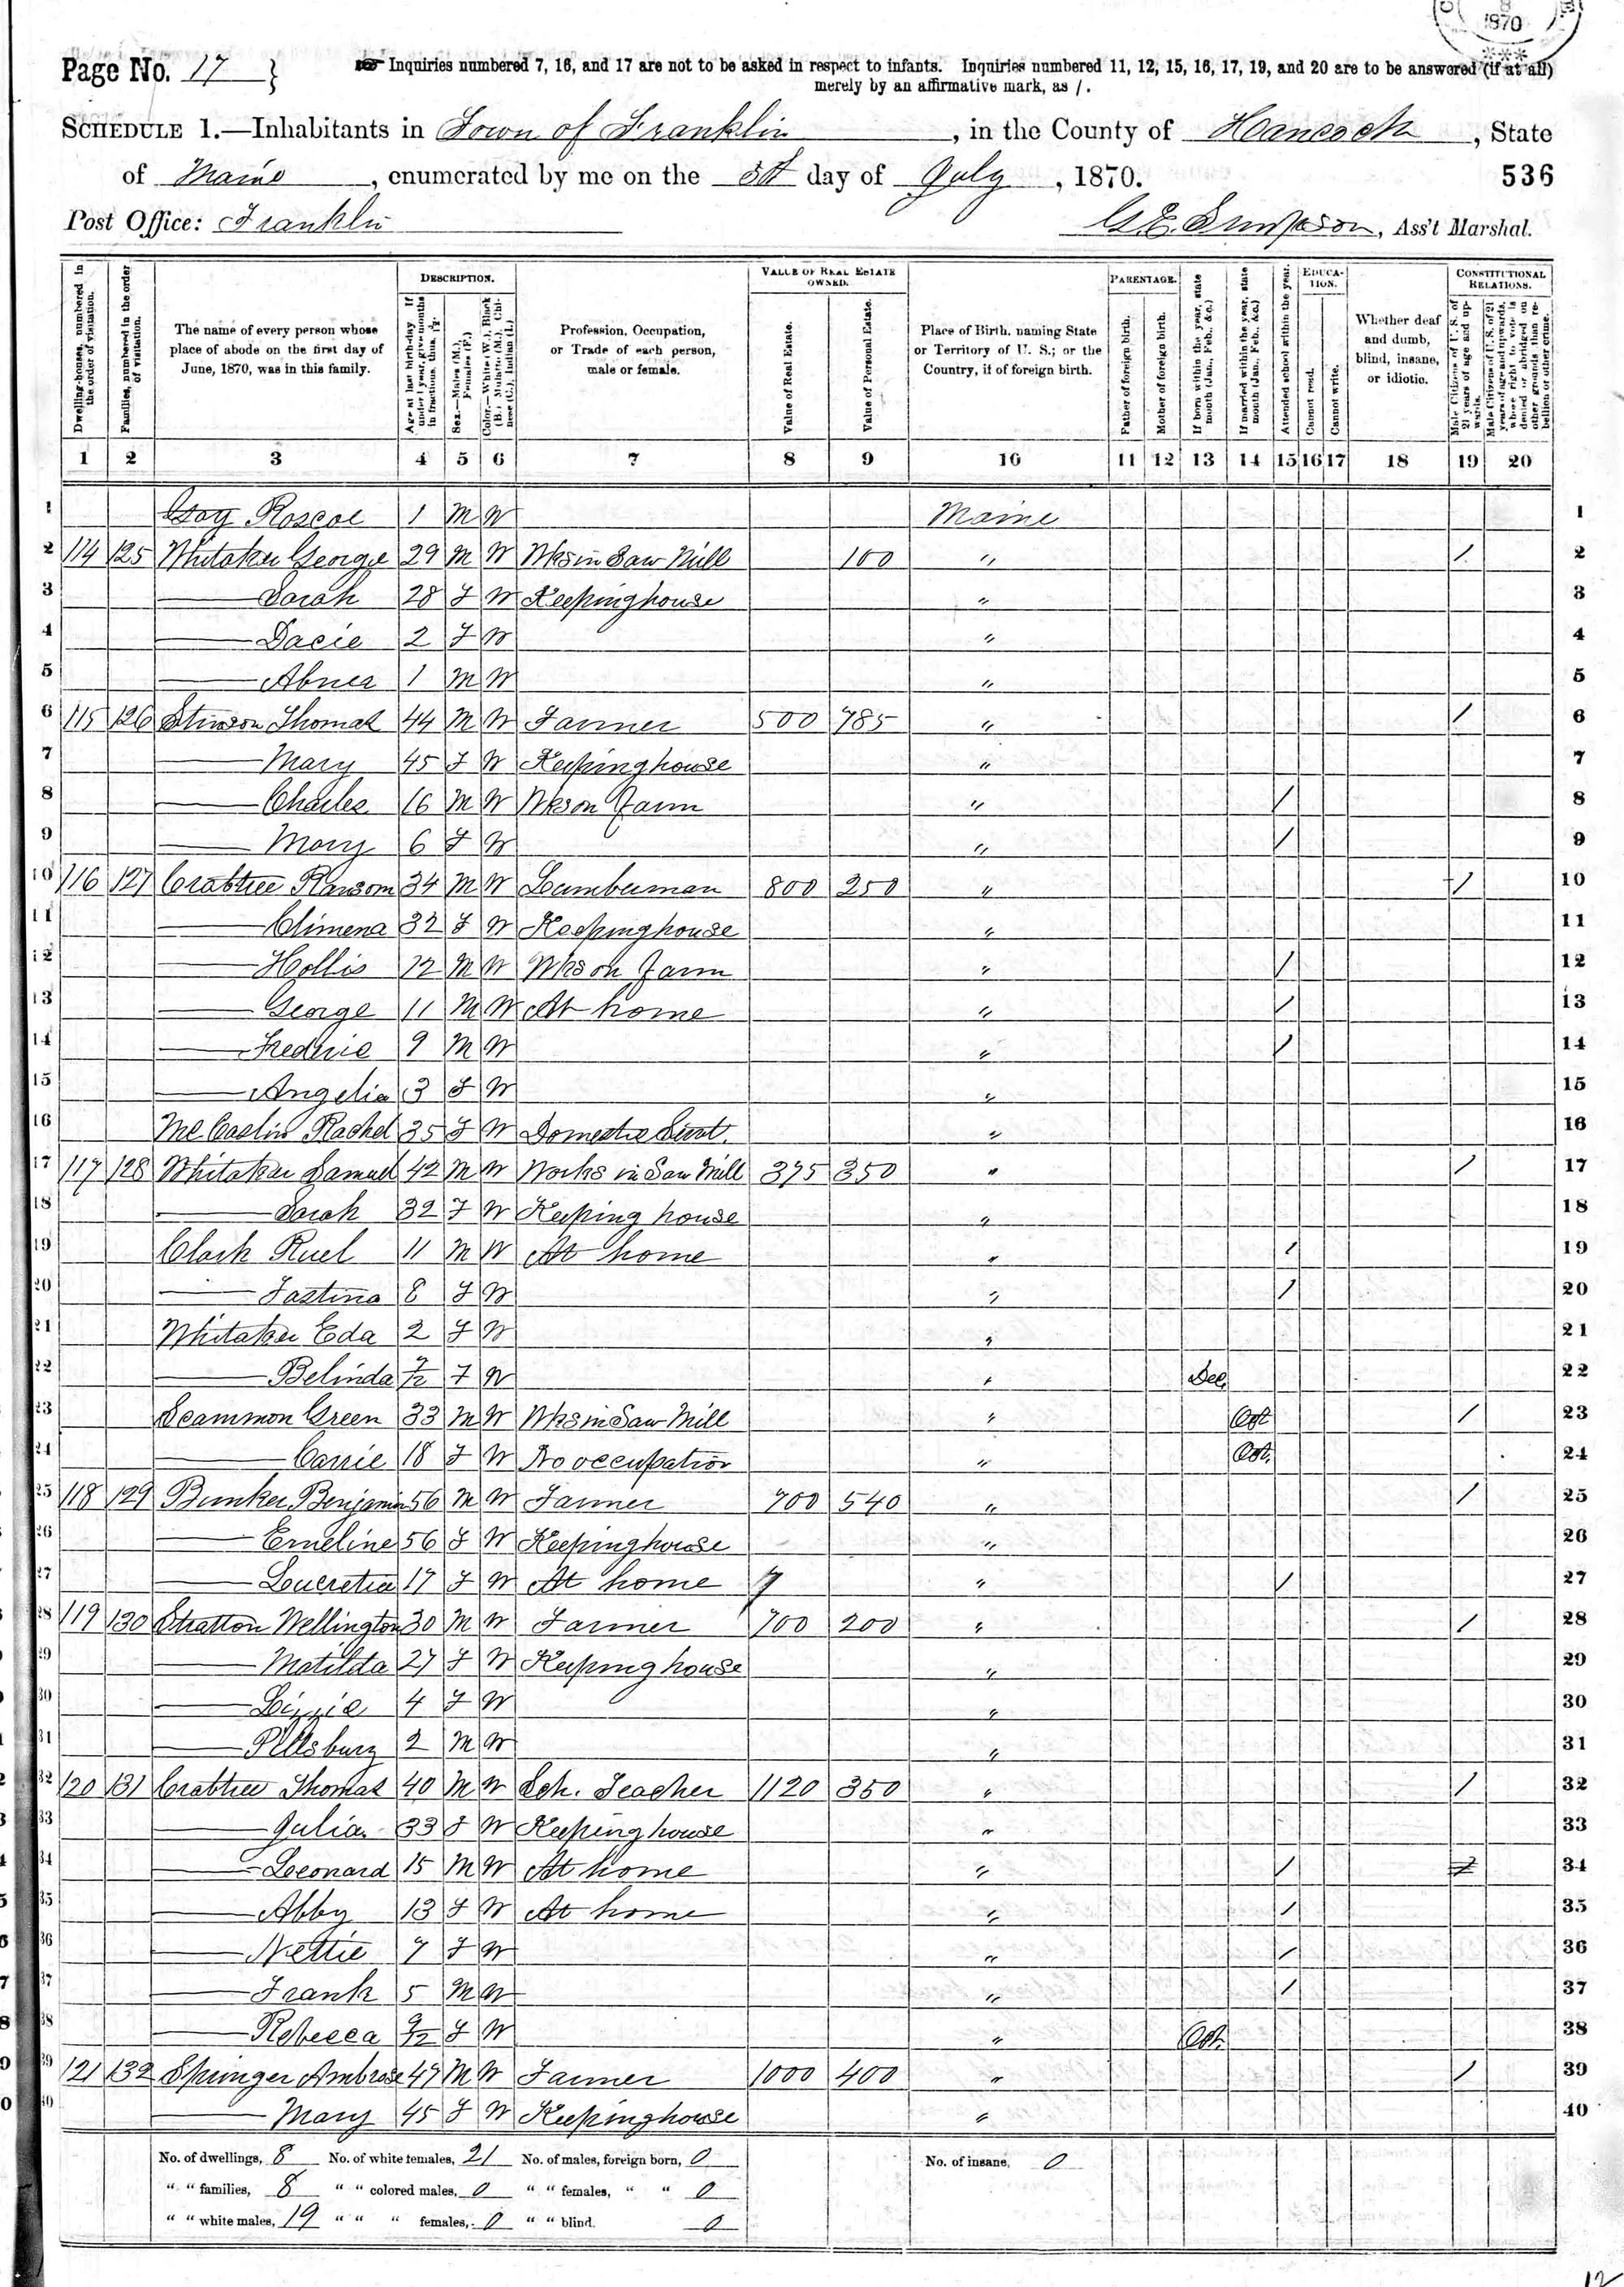 1870
Page No. 17 } Inquiries numbered 7, 16, and 17 are not to be asked in respect to infants. Inquiries numbered 11, 12, 15, 16, 17, 19, and 20 are to be answered (if at all)
merely by an affirmative mark, as /.
SCHEDULE 1.—Inhabitants in Town of Franklin, in the County of Hancock, State
of Maine, enumerated by me on the day of July, 1870. 536
Post Office: Franklin G. E. Simpson, Ass't Marshal.
Dwelling-houses, numbered in the order of visitation.
Families, numbered in the order of visitation.
The name of every person whose place of abode on the first day of June, 1870, was in this family.
DESCRIPTION.
Age at last birth-day. If under 1 year, give months in fractions, thus, 3/12.
Sex.—Males (M.), Females (F.)
Color.—White (W.), Black (B.), Mulatto (M.), Chinese (C.), Indian (I.)
Profession, Occupation, or Trade of each person, male or female.
VALUE OF REAL ESTATE OWNED.
Value of Real Estate.
Value of Personal Estate.
Place of Birth, naming State or Territory of U. S.; or the Country, if of foreign birth.
PARENTAGE.
Father of foreign birth.
Mother of foreign birth.
If born within the year, state month (Jan., Feb., &c.)
If married within the year, state month (Jan., Feb., &c.)
Attended school within the year.
EDUCATION.
Cannot read.
Cannot write.
Whether deaf and dumb, blind, insane, or idiotic.
CONSTITUTIONAL RELATIONS.
Male Citizens of U. S. of 21 years of age and upwards.
Male Citizens of U. S. of 21 years of age and upwards, whose right to vote is denied or abridged on other grounds than rebellion or other crime.
1 2 3 4 5 6 7 8 9 10 11 12 13 14 15 16 17 18 19 20
1 Roscoe 1 M W Maine 1
2 114 125 Whitaker George 29 M W Wks in Saw Mill 100 " / 2
3 — Sarah 28 F W Keeping house " 3
4 — Dacie 2 F W " 4
5 — Abner 1 M W " 5
6 115 126 Stinson Thomas 44 M W Farmer 500 785 " / 6
7 — Mary 45 F W Keeping house " 7
8 — Charles 16 M W Wks on Farm " / 8
9 — Mary 6 F W " / 9
10 116 127 Crabtree Ransom 34 M W Lumberman 800 250 " / 10
11 — Climena 32 F W Keeping house " 11
12 — Hollis 12 M W Wks on Farm " / 12
13 — George 11 M W At home " / 13
14 — Frederic 9 M W " / 14
15 — Angelia 3 F W " 15
16 Mc Caslin Rachel 35 F W Domestic Servt. " 16
17 117 128 Whitaker Samuel 42 M W Works in Saw Mill 375 350 " / 17
18 — Sarah 32 F W Keeping house " 18
19 Clark Ruel 11 M W At home " / 19
20 — Fastina 8 F W " / 20
21 Whitaker Eda 2 F W " 21
22 — Belinda 7/12 F W " Dec. 22
23 Scammon Green 33 M W Wks in Saw Mill " Oct / 23
24 — Carrie 18 F W No occupation " Oct. 24
25 118 129 Bunker Benjamin 56 M W Farmer 700 540 " / 25
26 — Emeline 56 F W Keeping house " 26
27 — Lucretia 17 F W At home " / 27
28 119 130 Stratton Wellington 30 M W Farmer 700 200 " / 28
29 — Matilda 27 F W Keeping house " 29
30 — Lizzie 4 F W " 30
31 — Pillsbury 2 M W " 31
32 120 131 Crabtree Thomas 40 M W Sch. Teacher 1120 350 " / 32
33 — Julia 33 F W Keeping house " 33
34 — Leonard 15 M W At home " / 34
35 — Abby 13 F W At home " / 35
36 — Nettie 7 F W " / 36
37 — Frank 5 M W " / 37
38 — Rebecca 9/12 F W " Oct. 38
39 121 132 Springer Ambrose 47 M W Farmer 1000 400 " / 39
40 — Mary 45 F W Keeping house " 40
No. of dwellings, 8 No. of white females, 21 No. of males, foreign born, 0 No. of insane, 0
" " families, 8 " " colored males, 0 " " females, " " 0
" " white males, 19 " " " females, 0 " " blind. 0